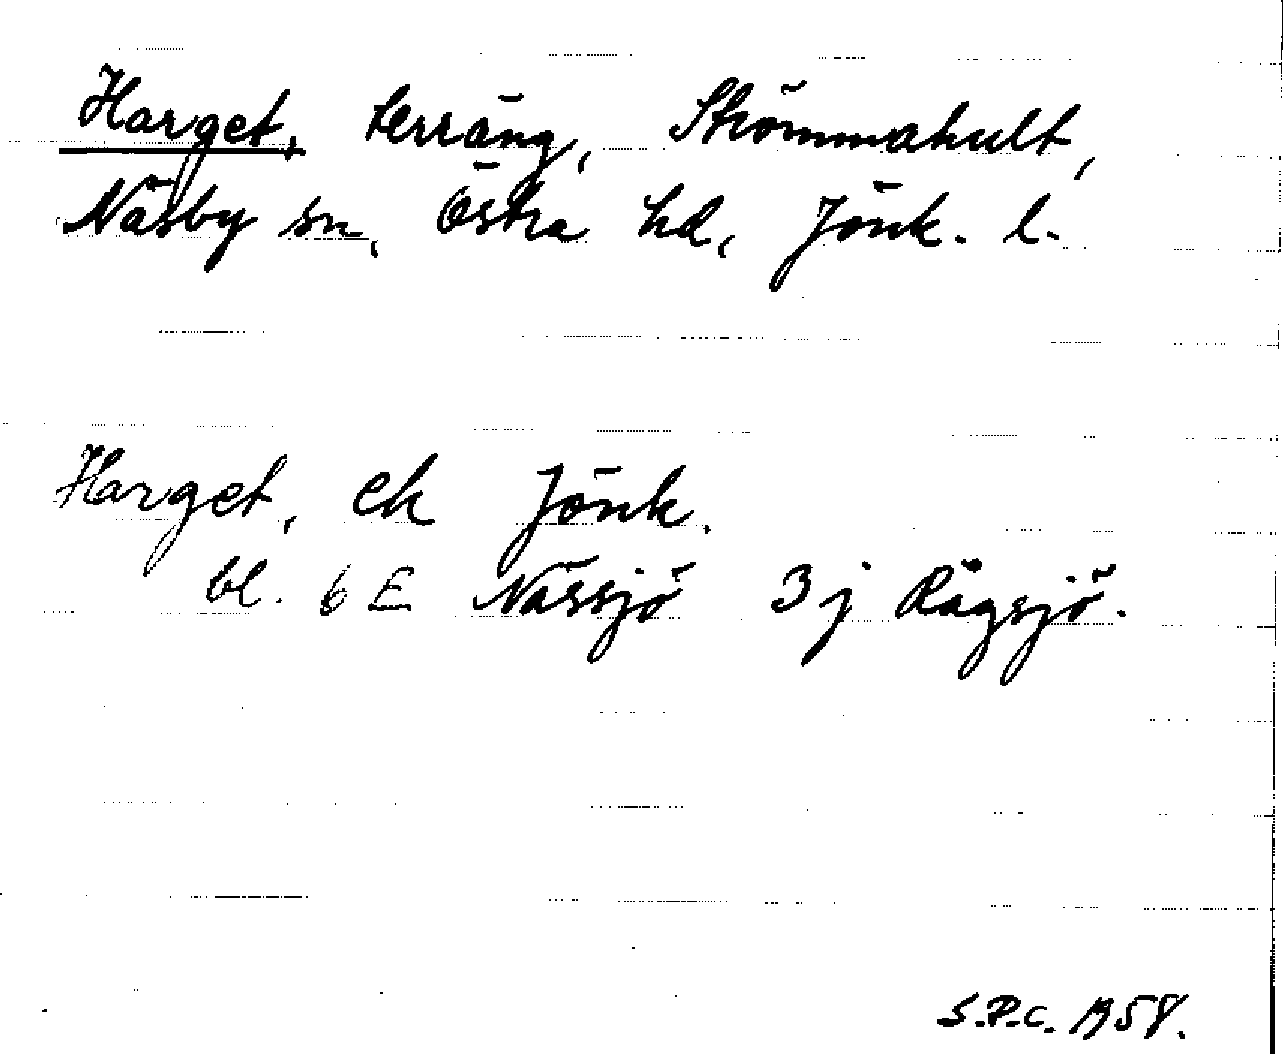 Harget, terräng, Strömmahult,
Näsby sn, Östra hd, Jönk. l.
Harget, ek Jönk.
bl. 6 E Nässjö 3 j Rågsjö.
S.P.C. 1958.